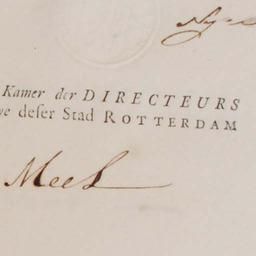 Kamer der DIRECTEURS
deser Stad ROTTERDAM
Meel